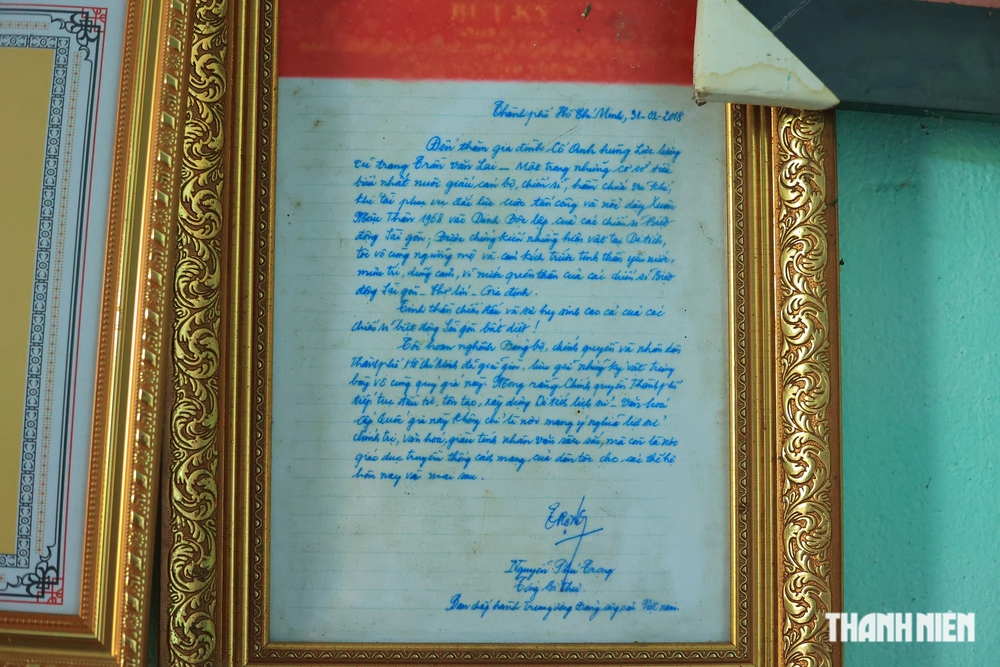 BÚT KÝ
Thành phố Hồ Chí Minh, 31-01-2018
Đến thăm gia đình Cố Anh hùng Lực lượng
vũ trang Trần Văn Lai - Một trong những cơ sở tiêu
biểu nhất nuôi giấu cán bộ, chiến sĩ, hầm chứa vũ khí,
khí tài phục vụ cho tấn công và nổi dậy Xuân
Mậu Thân 1968 vào Dinh Độc lập của các chiến sĩ Biệt
động Sài gòn; Được chứng kiến những hiện vật tại Di tích,
tôi vô cùng ngưỡng mộ và cảm kích trước tinh thần yêu nước,
mưu trí, dũng cảm, vì nước quên thân của các chiến sĩ Biệt
động Sài gòn - Chợ lớn - Gia định.
Tinh thần chiến đấu và sự hy sinh cao cả của các
chiến sĩ biệt động Sài gòn bất diệt!
Tôi hoan nghênh Đảng bộ, chính quyền và nhân dân
Thành phố Hồ Chí Minh đã gìn giữ, lưu giữ những kỷ vật trưng
bày vô cùng quý giá này. Mong rằng Chính quyền Thành phố
tiếp tục đầu tư, tôn tạo, xây dựng Di tích lịch sử - Văn hoá
cấp Quốc gia này không chỉ là nơi mang ý nghĩa lịch sử
chính trị, văn hoá, giàu tính nhân văn sâu sắc, mà còn là nơi
giáo dục truyền thống cách mạng của dân tộc cho các thế hệ
hôm nay và mai sau.
TRỌNG
Nguyễn Phú Trọng
Tổng Bí thư
Ban chấp hành Trung ương Đảng cộng sản Việt nam
THANH NIÊN